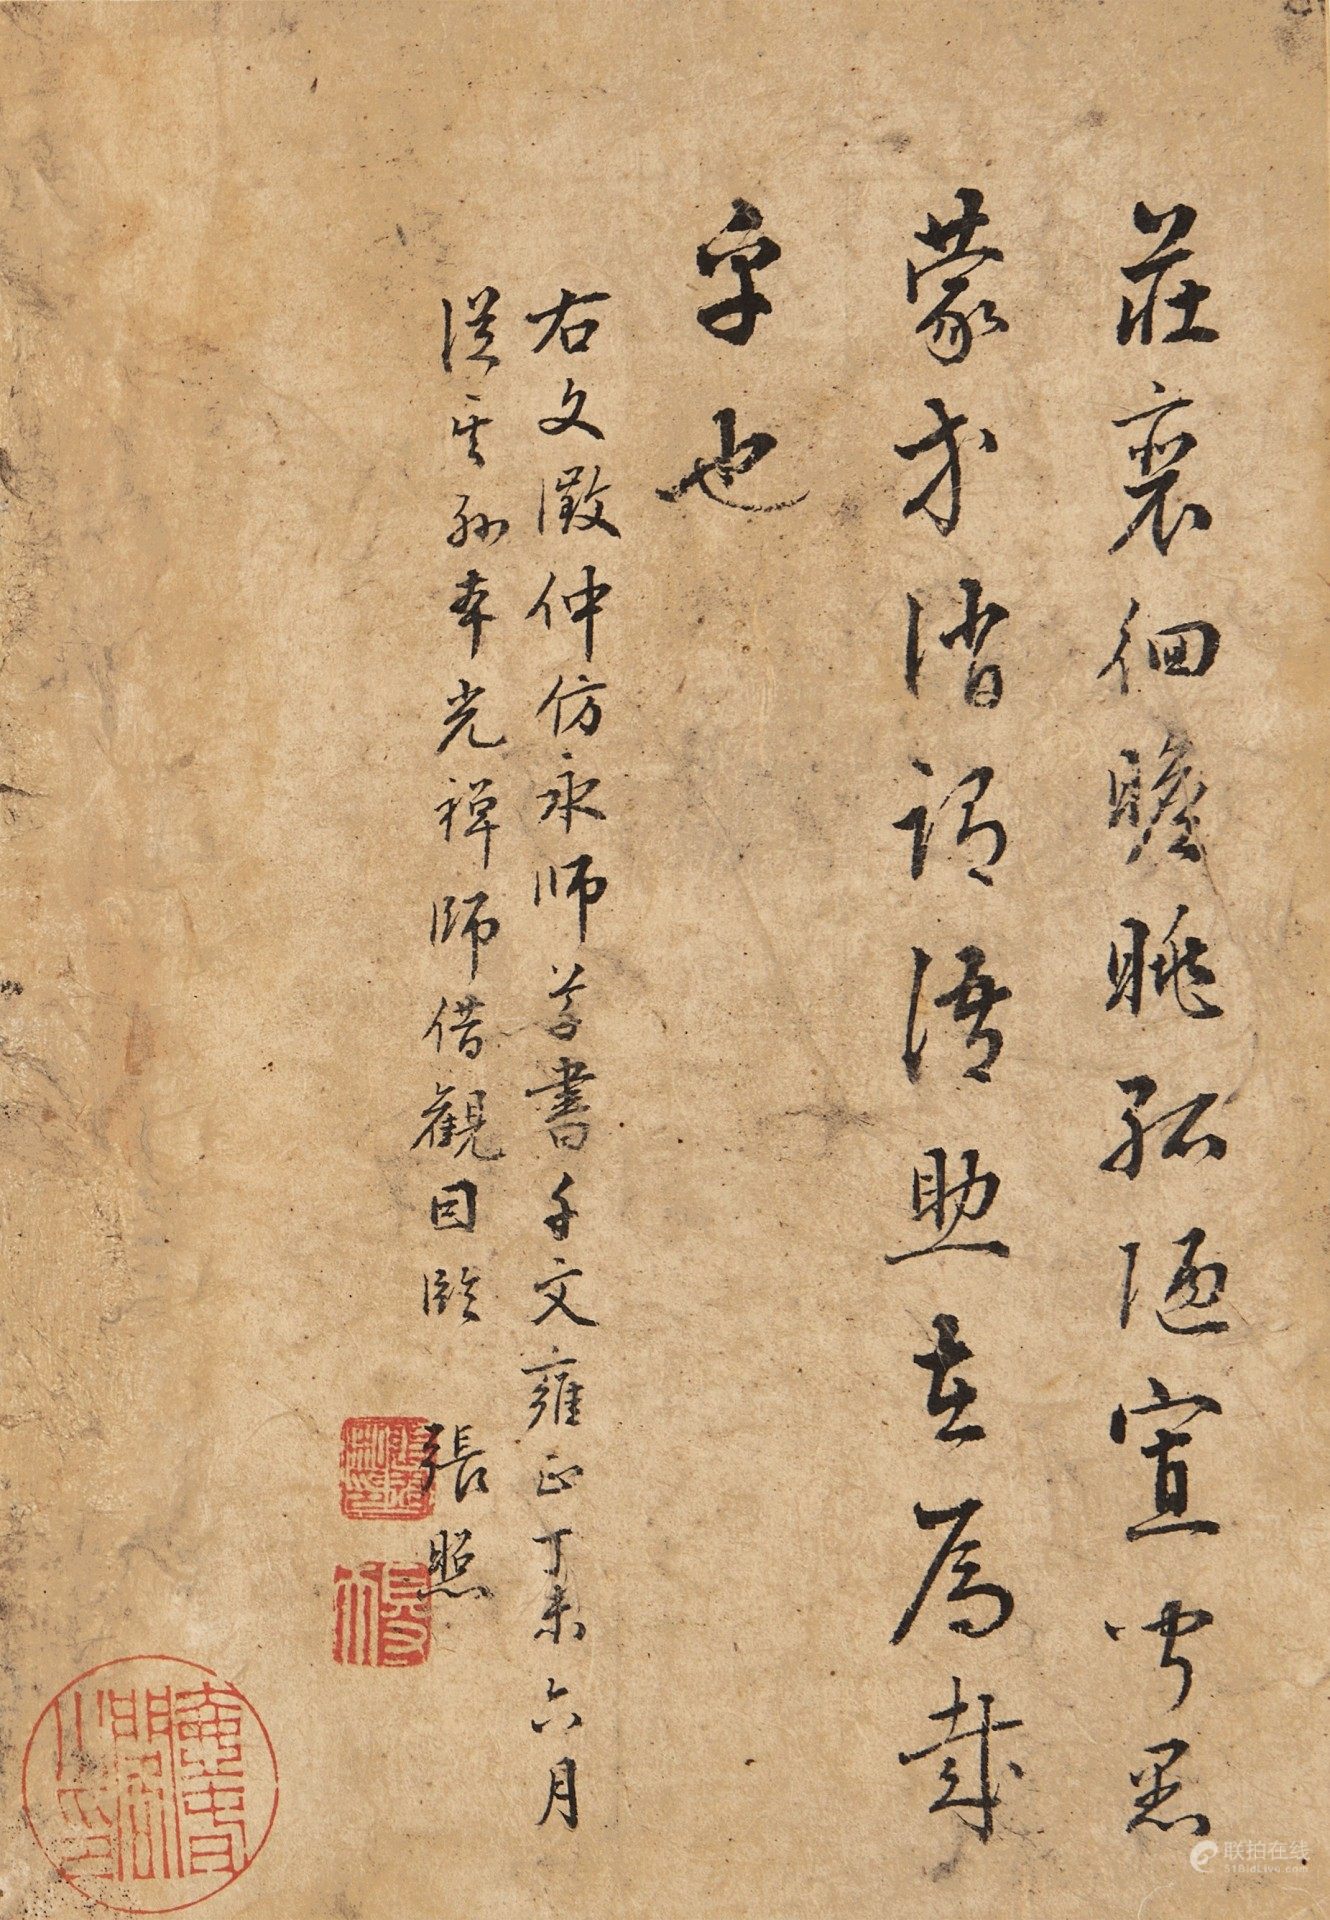 莊裵徊瞻眺孤陋寡聞愚
蒙求誚謂語助者焉哉
乎也
右文徵仲仿永師草書千文雍正丁未六月
從其孫本光禪師借觀因臨 張照
联拍在线
51BidLive.com